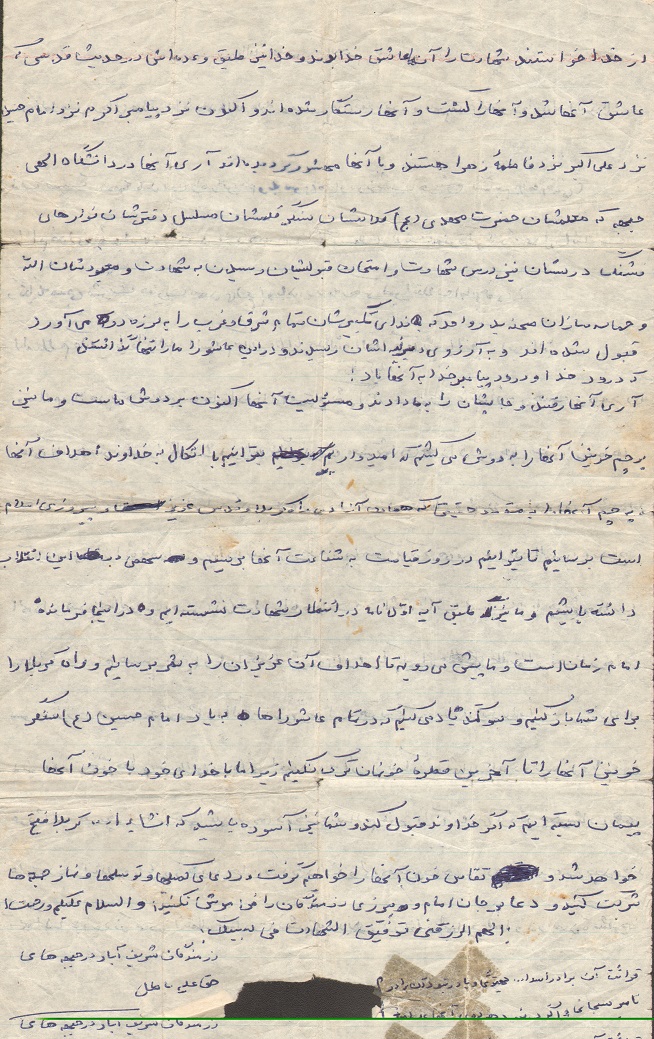 از خدا خواستند شهادت را آن عاشق خدا بودند و خدا نیز طبق وعده اش در حدیث قدسی که
عاشق آنها شد و آنها را کشت و آنها رستگار شده اند و اکنون نزد پیامبر اکرم نزد امام حسین
نزد علی اکبر نزد فاطمهٔ زهرا هستند و با آنها محشور گردیده اند آری آنها در دانشگاه الهی
جبهه که معلمشان حضرت مهدی (عج) کلاسشان سنگر قلمشان مسلسل دفترشان نوارهای
فشنگ درسشان نیز درس شهادت و امتحان قبولیشان رسیدن به شهادت و معبودشان الله
و حماسه سازان که ندای تکبیرشان تمام شرق و غرب را به لرزه در می آورد
قبول شده اند و به آرزوی اشان رسیدند و در این عاشورا ما را تنها گذاشتند
که درود خدا و درود پیامبر خدا به آنها باد!
آری آنها رفتند و جایشان را به ما دادند و مسئولیت آنها اکنون بر دوش ماست و ما نیز
پرچم خونین آنها را به دوش می کشیم که امیدواریم بتوانیم با اتکال به خداوند اهداف آنها
و پرچم آنها را به حقیقت که همان آزادی راه کربلا و قدس عزیز و پیروزی اسلام
است برسانیم تا بتوانیم در روز قیامت به شفاعت آنها برسیم و سهمی در این انقلاب
داشته باشیم و ما نیز طبق آیه در انتظار شهادت نشسته ایم و در اینجا فرمانده
امام زمان است و ما پیش می رویم تا اهداف آن عزیزان را به ثمر برسانیم و راه کربلا را
برای شما باز کنیم و سوگند یاد می کنیم که در تمام عاشوراها به یاد امام حسین (ع) سنگر
خونین آنها را تا آخرین قطرهٔ خونمان ترک نکنیم زیرا ما با خدای خود با خون آنها
پیمان بسته ایم که اگر خداوند قبول کند و شما نیز آسوده باشید که انشاءالله کربلا فتح
خواهد شد و تقاص خون آنها را خواهیم گرفت و در دعای کمیلها و توسلها و نماز جمعه ها
شرکت کنید و دعا بر جان امام و پیروزی رزمندگان را فراموش نکنید والسلام علیکم و رحمت ا
اللهم الرزقنی توفیق الشهادت فی سبیلک
رزمندگان شریف آباد در جبهه های
حق علیه باطل
قرائت آن برادر
رزمندگان شریف آباد در جبهه های